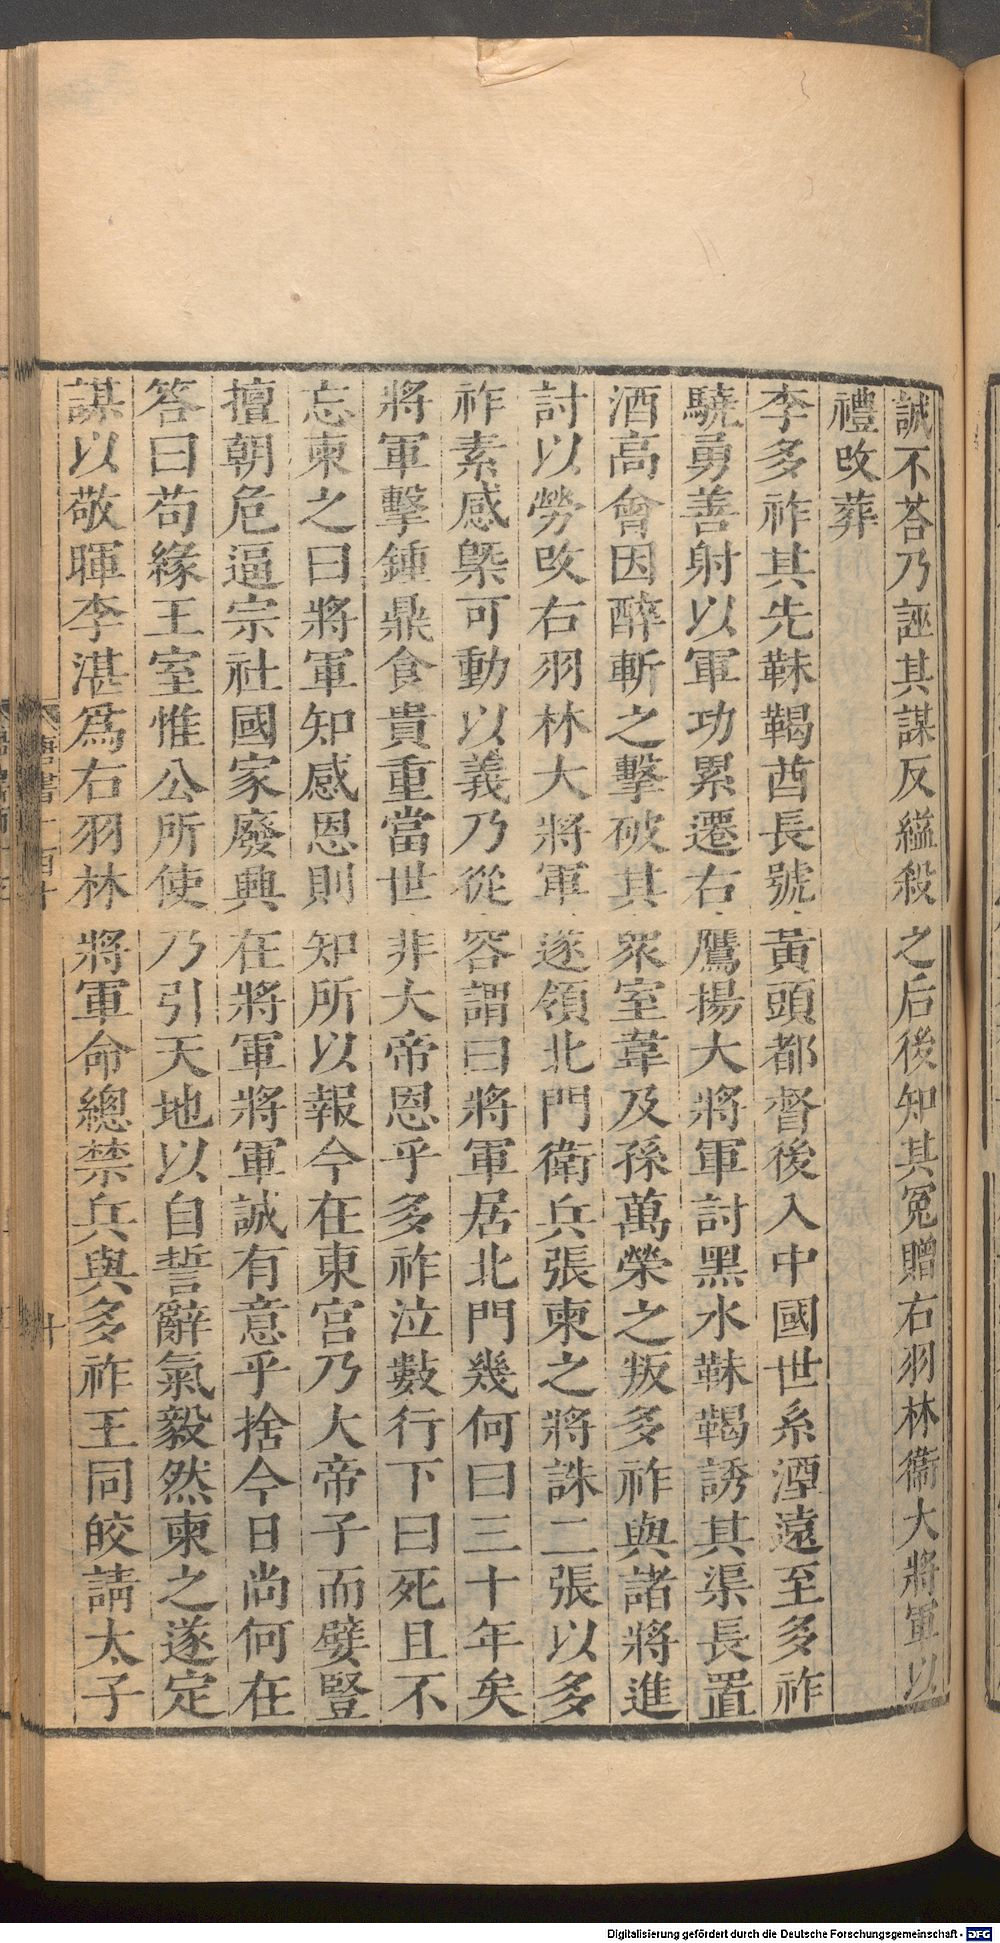 誠不荅乃誣其謀反縊殺之后後知其冤贈右羽林衞大將軍以
禮改葬
李多祚其先靺鞨酋長號黃頭都督後入中國世系湮遠至多祚
驍勇善射以軍功累遷右鷹揚大將軍討黑水靺鞨誘其渠長置
酒高會因醉斬之擊破其眾室韋及孫萬榮之叛多祚與諸將進
討以勞改右羽林大將軍遂領北門衛兵張柬之將誅二張以多
祚素感槩可動以義乃從容謂曰將軍居北門幾何曰三十年矣
將軍擊鍾鼎食貴重當世非大帝恩乎多祚泣數行下曰死且不
忘柬之曰將軍知感恩則知所以報今在東宮乃大帝子而嬖豎
擅朝危逼宗社國家廢興在將軍將軍誠有意乎捨今日尚何在
答曰苟緣王室惟公所使乃引天地以自誓辭氣毅然柬之遂定
謀以敬暉李湛爲右羽林將軍命總禁兵與多祚王同皎請太子
Digitalisierung gefördert durch die Deutsche Forschungsgemeinschaft - DFG